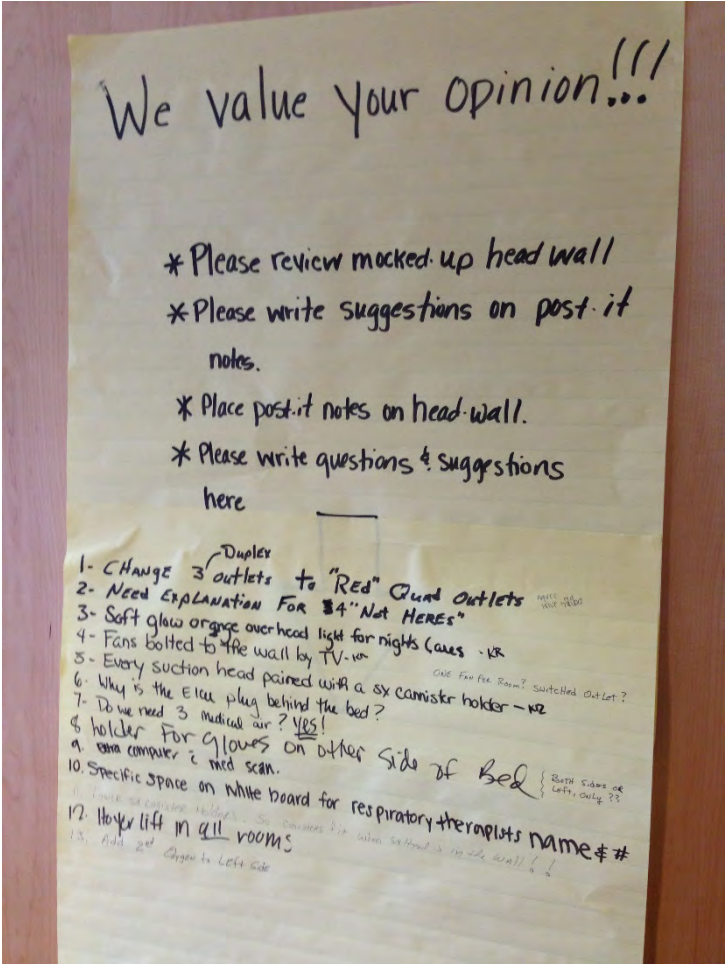 We value your opinion!!!
* Please review mocked-up head wall
* Please write suggestions on post-it
notes.
* Place post-it notes on head-wall.
* Please write questions & suggestions
here
Duplex
1- CHANGE 3 outlets to "RED" Quad outlets
2- NEED EXPLANATION FOR $4 "Not HEREs"
3- Soft glow orange overhead light for nights -KR
4- Fans bolted to the wall by TV -KR
ONE Fan Per Room? Switched Outlet?
5- Every suction head paired with a sx cannister holder - KR
6- Why is the Elec plug behind the bed?
7- Do we need 3 medical air? Yes!
8 holder For gloves on other side of Bed
Both Sides or
Left, Only ??
9. extra computer c̄ med scan.
10. Specific space on white board for respiratory therapists name & #
11. sx canister holders. So canisters fit when in the wall!!
12. Hoyer lift in all rooms
13. Add 2nd Oxygen to Left Side